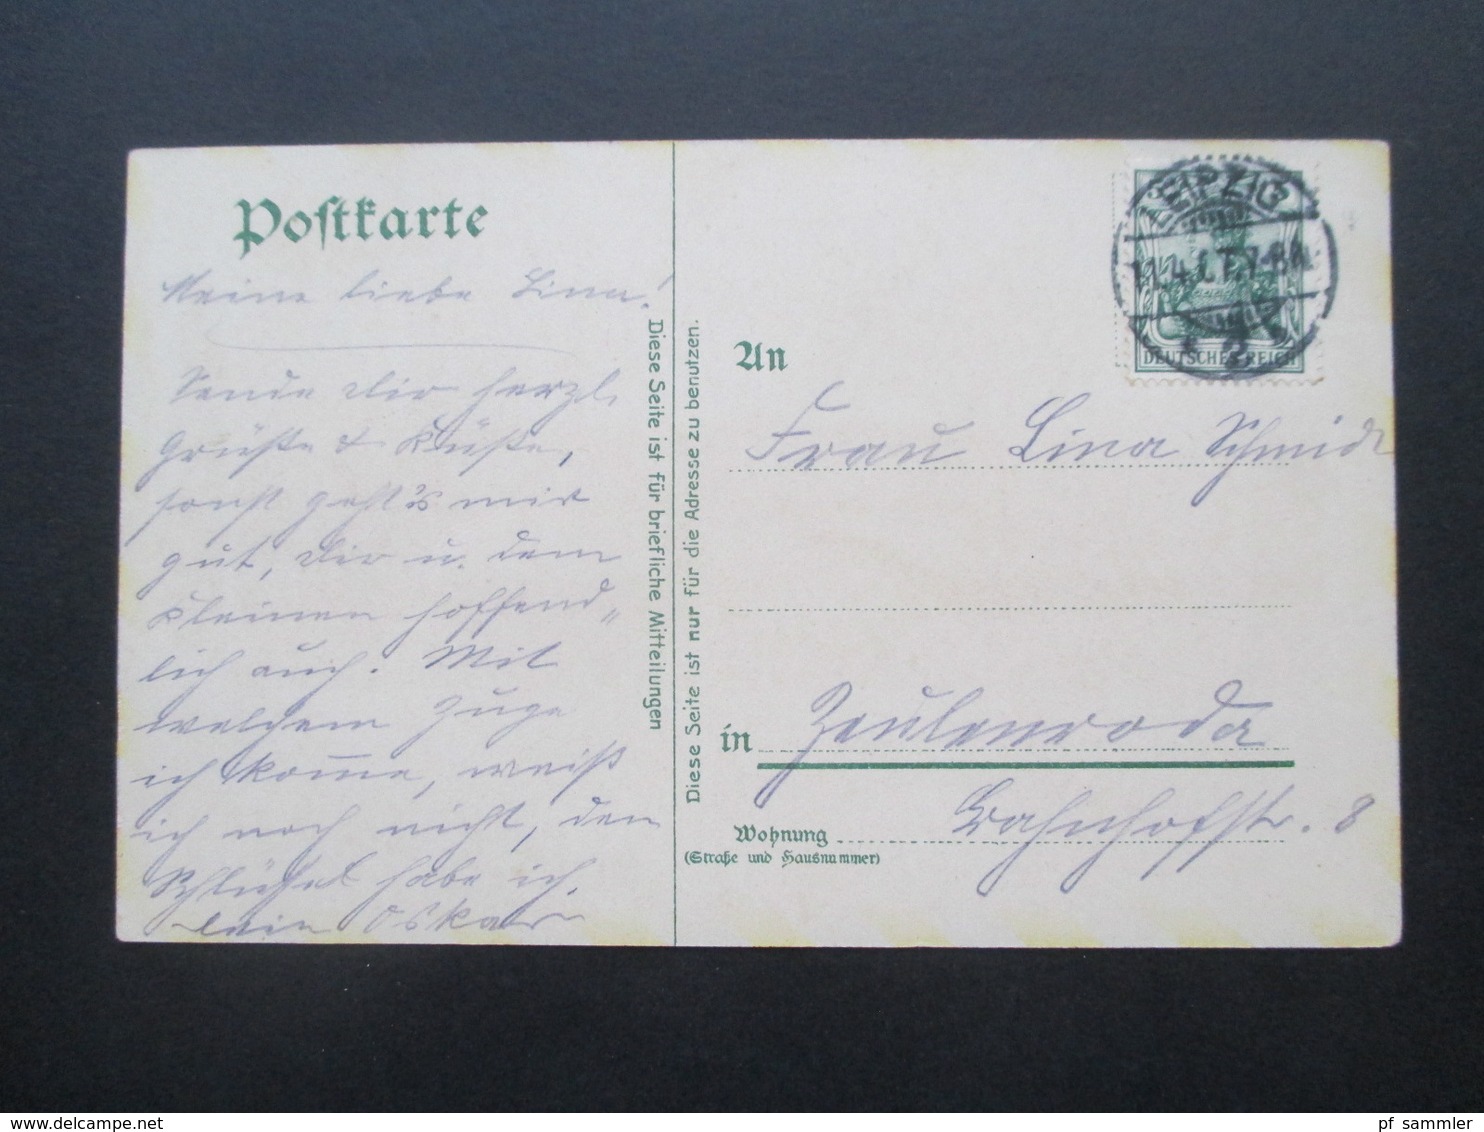 Postkarte
Meine liebe Lina!
Sende Dir herzl.
Grüße & Küße,
sonst geht's mir
gut, Dir u. dem
Kleinen hoffend„
lich auch. Mit
welchem Zuge
ich komme, weiß
ich noch nicht, den
Schlüssel habe ich.
Dein Oskar
Diese Seite ist für briefliche Mitteilungen
Diese Seite ist nur für die Adresse zu benutzen.
LEIPZIG
2
DEUTSCHES REICH
An
Frau Lina Schmidt
in Zeulenroda
Wohnung Bahnhofstr. 8
(Straße und Hausnummer)
pf_sammler